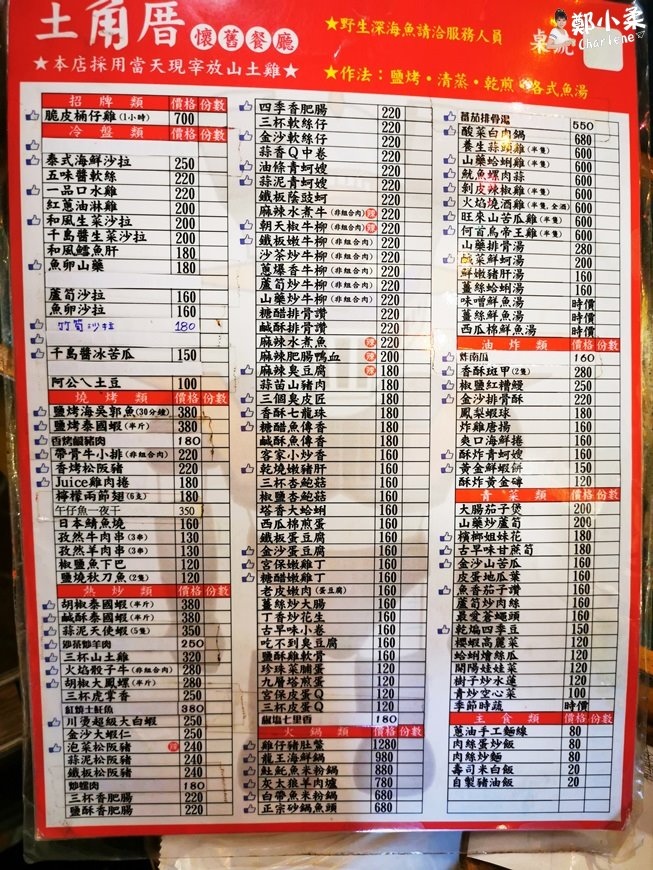 土角厝 懷舊餐廳
★本店採用當天現宰放山土雞★
★野生深海魚請洽服務人員
★作法：鹽烤・清蒸・乾煎・各式魚湯
桌號
鄭小柔
Charlene
招牌類 價格 份數
脆皮桶仔雞(1小時) 700
冷盤類 價格 份數
泰式海鮮沙拉 250
五味醬軟絲 220
一品口水雞 220
紅蔥油淋雞 200
和風生菜沙拉 200
千島醬生菜沙拉 200
和風鱈魚肝 180
魚卵山藥 180
蘆筍沙拉 160
魚卵沙拉 160
竹筍沙拉 180
千島醬冰苦瓜 150
阿公ㄟ土豆 100
燒烤類 價格 份數
鹽烤海吳郭魚(30分鐘) 380
鹽烤泰國蝦(半斤) 380
香烤鹹豬肉 180
帶骨牛小排(非組合肉) 220
香烤松阪豬 220
Juice雞肉捲 180
檸檬兩節翅(6支) 180
午仔魚一夜干 350
日本鯖魚燒 160
孜然牛肉串(3串) 130
孜然羊肉串(3串) 130
椒鹽魚下巴 120
鹽燒秋刀魚(2隻) 120
熱炒類 價格 份數
胡椒泰國蝦(半斤) 380
鹹酥泰國蝦(半斤) 380
蒜泥天使蝦(5隻) 350
沙茶炒羊肉 250
三杯山土雞 320
火焰骰子牛(非組合肉) 280
胡椒大鳳螺(半斤) 280
三杯虎掌香 250
紅燒土魠魚 380
川燙超級大白蝦 250
金沙大蝦仁 250
泡菜松阪豬 辣 240
蒜泥松阪豬 240
鐵板松阪豬 240
炒螺肉 180
三杯香肥腸 220
鹽酥香肥腸 220
四季香肥腸 220
三杯軟絲仔 220
金沙軟絲仔 220
蒜香Q中卷 220
油條青蚵嫂 220
蒜泥青蚵嫂 220
鐵板蔭豉蚵 220
麻辣水煮牛(非組合肉) 辣 220
朝天椒牛柳(非組合肉) 辣 220
鐵板嫩牛柳(非組合肉) 220
沙茶炒牛柳(非組合肉) 220
蔥爆香牛柳(非組合肉) 220
蘆筍炒牛柳(非組合肉) 220
山藥炒牛柳(非組合肉) 220
糖醋排骨讚 220
鹹酥排骨讚 220
麻辣水煮魚 辣 220
麻辣肥腸鴨血 辣 200
麻辣臭豆腐 辣 180
蒜苗山豬肉 180
三個臭皮匠 180
香酥七龍珠 180
糖醋魚傳香 180
鹹酥魚傳香 180
客家小炒香 180
乾燒嫩豬肝 180
三杯杏鮑菇 160
椒鹽杏鮑菇 160
塔香大蛤蜊 160
西瓜綿煎蛋 160
鐵板蛋豆腐 160
金沙蛋豆腐 160
宮保嫩雞丁 160
糖醋嫩雞丁 160
老皮嫩肉(蛋豆腐) 160
薑絲炒大腸 160
丁香炒花生 160
古早味小卷 160
吃不到臭豆腐 160
鹽酥雞軟骨 160
珍珠菜脯蛋 120
九層塔煎蛋 120
宮保皮蛋Q 120
三杯皮蛋Q 120
椒塩七里香 180
火鍋類 價格 份數
雞仔豬肚鱉 1280
龍王海鮮鍋 980
魠魠魚米粉鍋 880
灰太狼羊肉爐 780
白帶魚米粉鍋 680
正宗砂鍋魚頭 680
蕃茄排骨湯 550
酸菜白肉鍋 680
養生蒜頭雞(半隻) 600
山藥蛤蜊雞(半隻) 600
魷魚螺肉蒜 600
剝皮辣椒雞(半隻) 600
火焰燒酒雞(半隻,全酒) 600
旺來山苦瓜雞(半隻) 600
何首烏帝王雞(半隻) 600
山藥排骨湯 280
鹹菜鮮蚵湯 200
鮮嫩豬肝湯 160
薑絲蛤蜊湯 160
味噌鮮魚湯 時價
薑絲鮮魚湯 時價
西瓜棉鮮魚湯 時價
油炸類 價格 份數
炸南瓜 160
香酥斑甲(2隻) 280
椒鹽紅糟鰻 250
金沙排骨酥 220
鳳梨蝦球 180
炸雞唐揚 160
爽口海鮮捲 160
酥炸青蚵嫂 160
黃金鮮蝦餅 150
酥炸黃金磚 120
青菜類 價格 份數
大腸茄子煲 200
山藥炒蘆筍 200
檳榔姐妹花 180
古早味甘蔗筍 180
金沙山苦瓜 160
皮蛋地瓜葉 160
魚香茄子讚 160
蘆筍炒肉絲 160
最愛蒼蠅頭 160
乾煸四季豆 150
櫻蝦高麗菜 120
蛤蜊燴絲瓜 120
開陽娃娃菜 120
樹子炒水蓮 120
青炒空心菜 100
季節時蔬 時價
主食類 價格 份數
蔥油手工麵線 80
肉絲蛋炒飯 80
肉絲炒麵 80
壽司米白飯 20
自製豬油飯 20